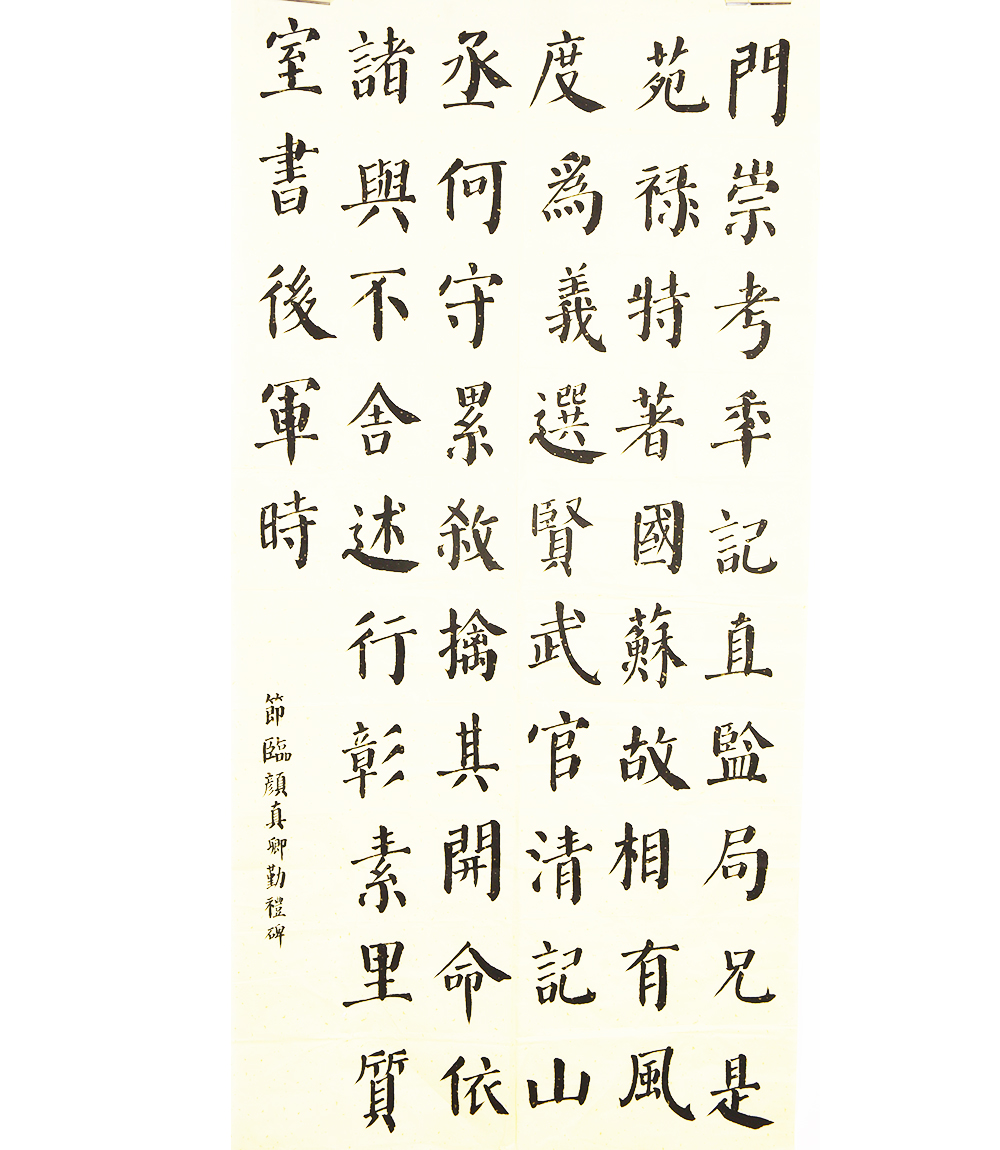 門崇考季記直監局兄是
苑禄特著國蘇故相有風
度為義選賢武官清記山
丞何守累敘擒其開命依
諸與不舍述行彰素里質
室書後軍時
節臨顔真卿勤禮碑